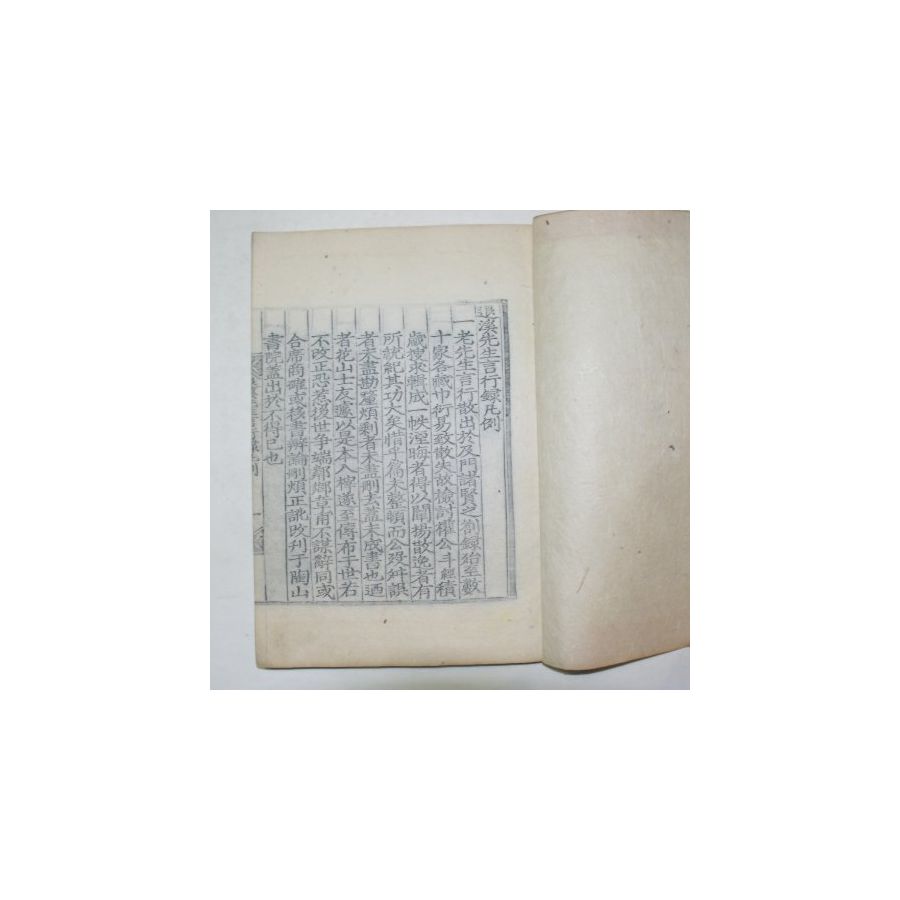 退溪先生言行錄凡例
一老先生言行散出於及門諸賢之劄錄殆至數
十家各緘巾衍易致散失故檢討權公斗經積
歲搜求輯成一帙湮晦者得以闡揚散逸者有
所統紀其功大矣惜乎爲未整頓而公歿舛誤
者未盡勘釐煩剩者未盡刪去蓋未成書也迺
者花山士友遽以是本入梓遂至傳布于世若
不改正恐惹後世爭端鄰鄕章甫不謀辭同或
合席商確或移書辯論刪煩正訛改刊于陶山
書院蓋出於不得已也
一